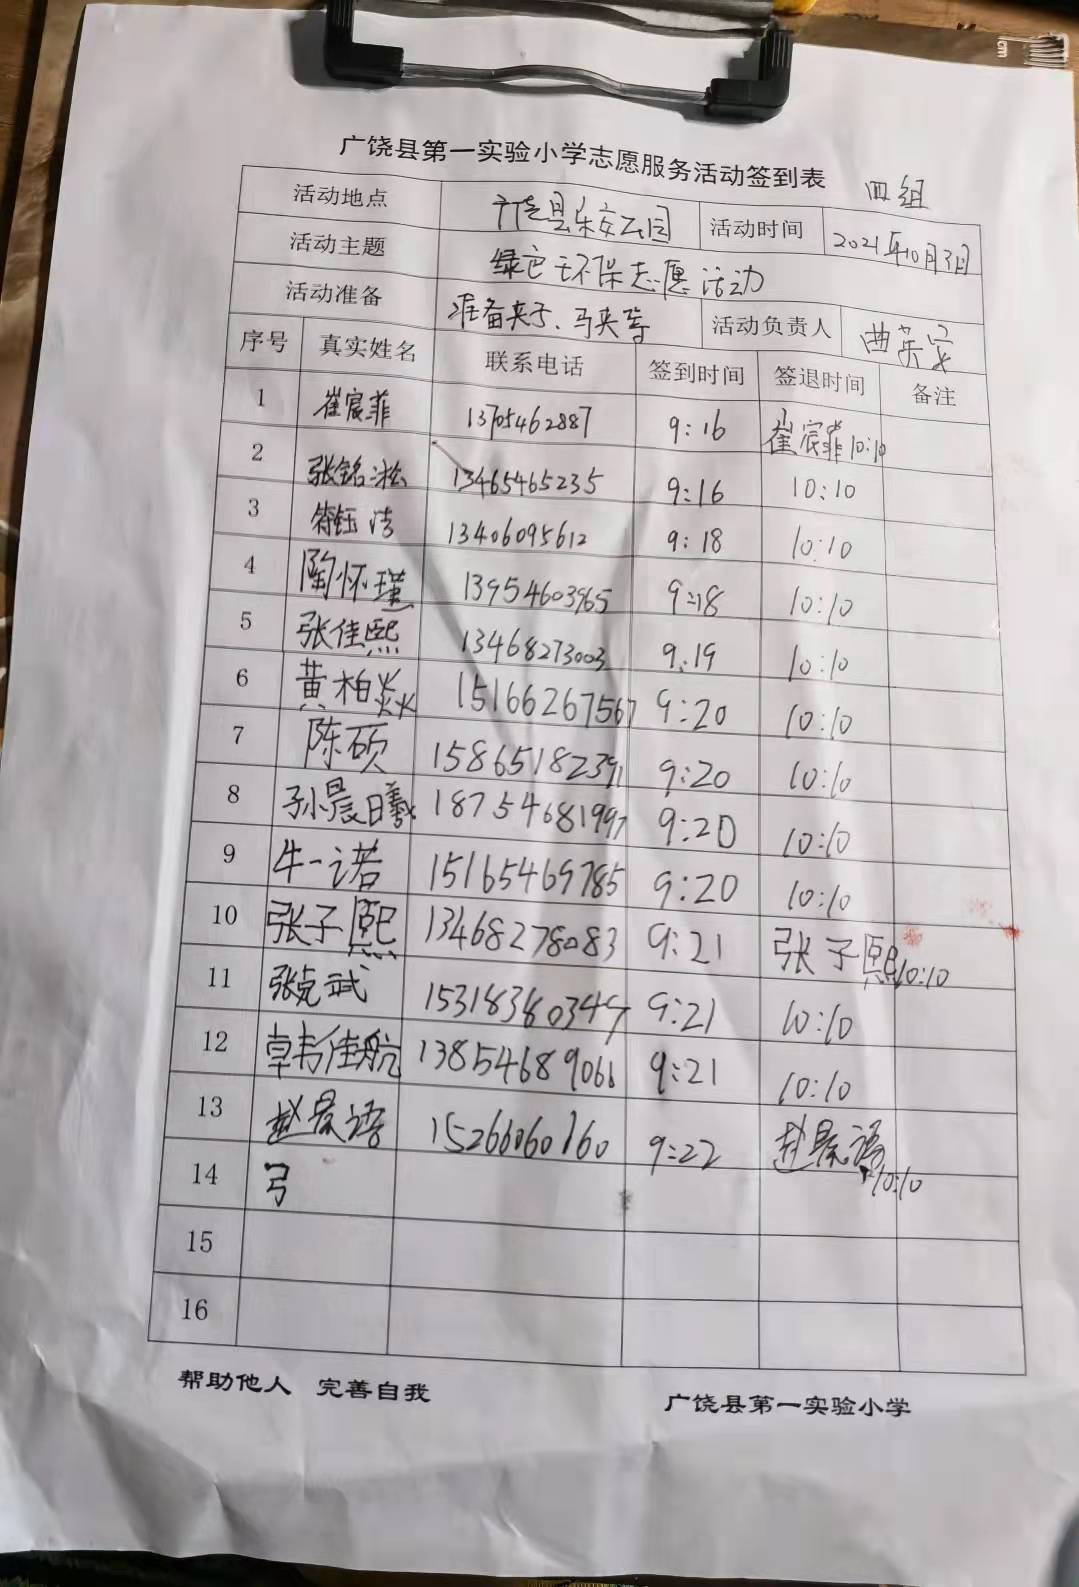 广饶县第一实验小学志愿服务活动签到表 四组
活动地点 广饶县乐安公园 活动时间 2021年10月3日
活动主题 绿色环保志愿活动
活动准备 准备夹子、马夹等 活动负责人 曲英
序号 真实姓名 联系电话 签到时间 签退时间 备注
1 崔宸菲 13705462887 9:16 崔宸菲10:10
2 张铭淞 13465465235 9:16 10:10
3 钰洁 13406095612 9:18 10:10
4 陶怀瑾 13954603965 9:18 10:10
5 张佳熙 13468273003 9:19 10:10
6 黄柏焱 15166267567 9:20 10:10
7 陈硕 15865182391 9:20 10:10
8 孙晨曦 18754681997 9:20 10:10
9 牛一诺 15165469785 9:20 10:10
10 张子熙 13468278083 9:21 张子熙10:10
11 张克斌 15318380349 9:21 10:10
12 韦佳航 13854689066 9:21 10:10
13 赵景语 15266060160 9:22 赵景语10:10
14 弓
15
16
帮助他人 完善自我 广饶县第一实验小学